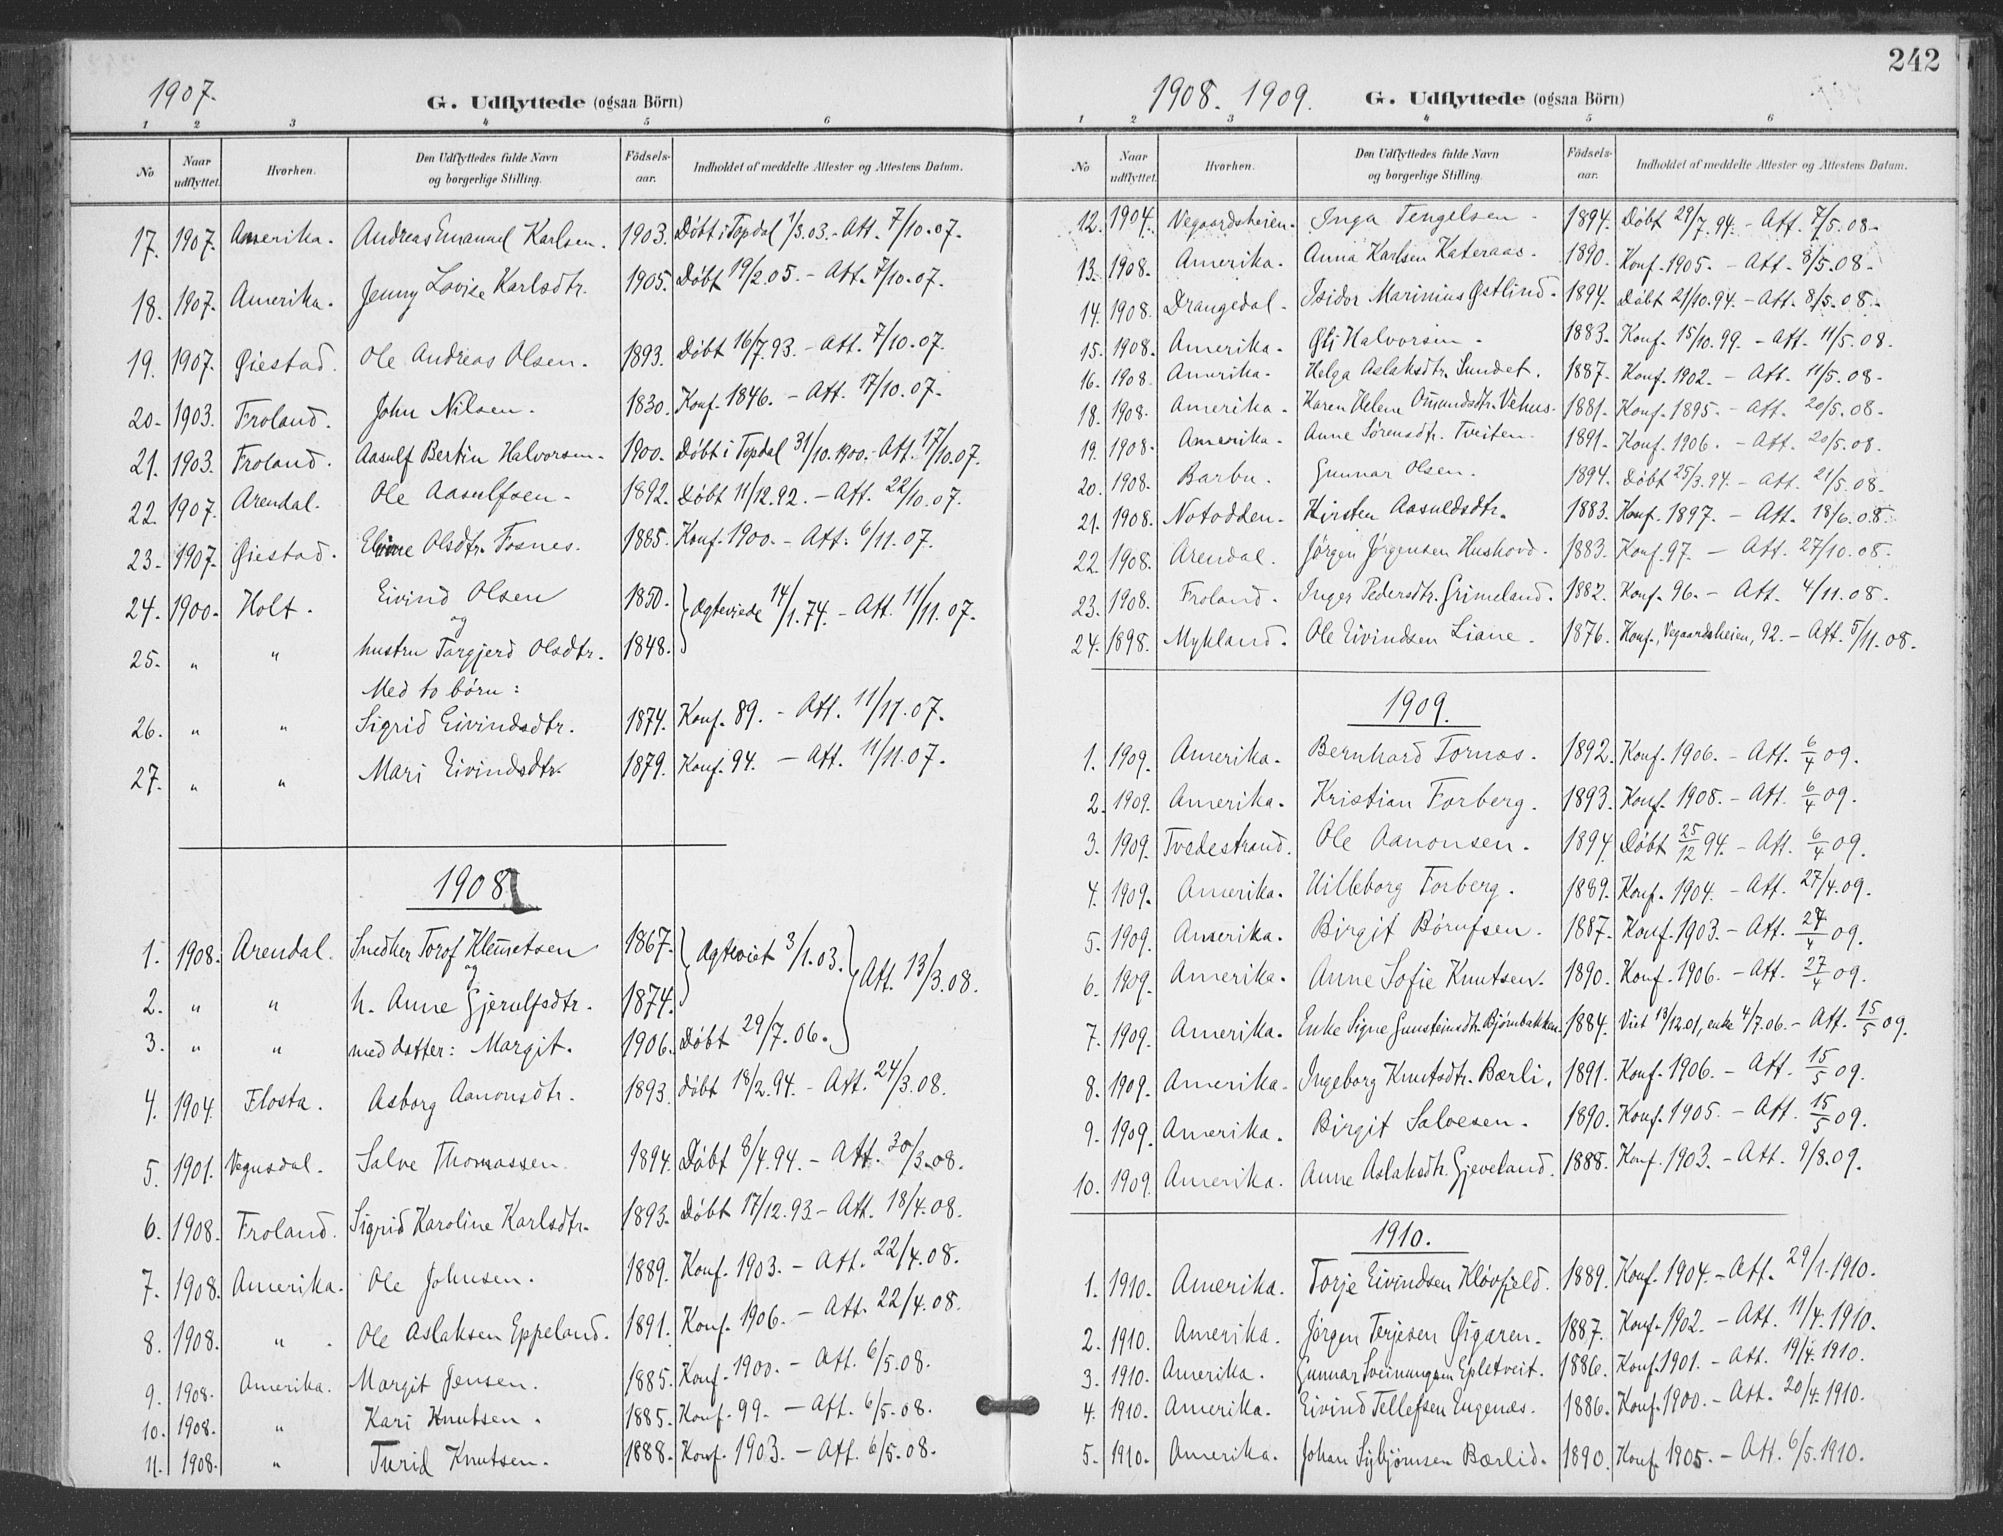 1907.
G. Udflyttede (ogsaa Börn)
1 2 3 4 5 6
No Naar udflyttet. Hvorhen. Den Udflyttedes fulde Navn og borgerlige Stilling. Födsels-aar. Indholdet af meddelte Attester og Attestens Datum.
17. 1907. Amerika. Andreas Emanuel Karlsen. 1903. Døbt i Topdal 1/3.03. - Att. 7/10.07.
18. 1907. Amerika. Jenny Lovise Karlsdtr. 1905. Døbt 19/2.05. - Att. 7/10.07.
19. 1907. Øiestad. Ole Andreas Olsen. 1893. Døbt 16/7.93. - Att. 7/10.07.
20. 1903. Froland. John Nilsen. 1830. Konf. 1846. - Att. 17/10.07.
21. 1903. Froland. Aasulf Bertin Halvorsen. 1900. Døbt i Topdal 31/10.1900. - Att. 17/10.07.
22. 1907. Arendal. Ole Aasulfsen. 1892. Døbt 11/12.92. - Att. 22/10.07.
23. 1907. Øiestad. Olsdtr. Fosnes. 1885. Konf. 1900. - Att. 6/11.07.
24. 1900. Holt. Eivind Olsen 1850. Ægteviede 14/1.74. - Att. 11/11.07.
og
25. " " hustru Torgjerd Olsdtr. 1848.
Med to børn:
26. " " Sigrid Eivindsdtr. 1874. Konf. 89. - Att. 11/11.07.
27. " " Mari Eivindsdtr. 1879. Konf. 94. - Att. 11/11.07.
1908
1. 1908. Arendal. Snedker Torof Klemetsen 1867. Ægteviet 3/1.03. Att. 13/3.08.
og
2. " " h. Anne Gjerulfsdtr. 1874.
3. " " med datter: Margit. 1906. Døbt 29/7.06.
4. 1904. Flosta. Asborg Aanonsdtr. 1893. Døbt 18/2.94. - Att. 24/3.08.
5. 1901. Vegusdal. Salve Thomassen. 1894. Døbt 8/4.94. - Att. 30/3.08.
6. 1908. Froland. Sigrid Karoline Karlsdtr. 1893. Døbt 17/12.93. - Att. 18/4.08.
7. 1908. Amerika. Ole Johnsen. 1889. Konf. 1903. - Att. 22/4.08.
8. 1908. " Ole Aslaksen Eppeland. 1891. Konf. 1906. - Att. 22/4.08.
9. 1908. Amerika. Margit Jensen. 1885. Konf. 1900. - Att. 6/5.08.
10. 1908. " Kari Knutsen. 1885. Konf. 99. - Att. 6/5.08.
11. 1908. " Turid Knutsen. 1888. Konf. 1903. - Att. 6/5.08.
242
1908. 1909.
G. Udflyttede (ogsaa Börn)
1 2 3 4 5 6
No Naar udflyttet. Hvorhen. Den Udflyttedes fulde Navn og borgerlige Stilling. Födsels-aar. Indholdet af meddelte Attester og Attestens Datum.
12. 1904. Vegaardsheien. Inga Tengelsen. 1894. Døbt 29/7.94. - Att. 7/5.08.
13. 1908. Amerika. Anna Karlsen Kateraas. 1890. Konf. 1905. - Att. 8/5.08.
14. 1908. Drangedal. Isidor Marinius Østlind. 1894. Døbt 21/10.94. - Att. 8/5.08.
15. 1908. Amerika. Halvorsen. 1883. Konf. 15/10.99. - Att. 11/5.08.
16. 1908. Amerika. Helga Aslaksdtr. Sundet. 1887. Konf. 1902. - Att. 11/5.08.
18. 1908. Amerika. Karen Helene Omundsdtr. Vehus. 1881. Konf. 1895. - Att. 20/5.08.
19. 1908. Amerika. Anne Sørensdtr. Tveiten. 1891. Konf. 1906. - Att. 20/5.08.
20. 1908. Barbu. Gunnar Olsen. 1894. Døbt 25/3.94. - Att. 21/5.08.
21. 1908. Notodden. Kirsten Aasuldsdtr. 1883. Konf. 1897. - Att. 18/6.08.
22. 1908. Arendal. Jørgen Jørgensen Huskovd. 1883. Konf. 97. - Att. 27/10.08.
23. 1908. Froland. Inger Pedersdtr. Grimeland. 1882. Konf. 96. - Att. 4/11.08.
24. 1898. Mykland. Ole Eivindsen Liane. 1876. Konf., Vegaardsheien, 92. - Att. 5/11.08.
1909.
1. 1909. Amerika. Bernhard Tornas. 1892. Konf. 1906. - Att. 6/4 09.
2. 1909. Amerika. Kristian Torberg. 1893. Konf. 1908. - Att. 6/4 09.
3. 1909. Tvedestrand. Ole Aanonsen. 1894. Døbt 25/12 94. - Att. 6/4 09.
4. 1909. Amerika. Uilleborg Torberg. 1889. Konf. 1904. - Att. 27/4.09.
5. 1909. Amerika. Birgit Børufsen. 1887. Konf. 1903. - Att. 27/4 09.
6. 1909. Amerika. Anne Sofie Knutsen. 1890. Konf. 1906. - Att. 27/4 09.
7. 1909. Amerika. Enke Signe Gunsteinsdtr. Bjørnbakken. 1884. Viet 13/12.01, enke 4/7.06. - Att. 15/5 09.
8. 1909. Amerika. Ingeborg Knutsdtr. Bærli. 1891. Konf. 1906. - Att. 15/5 09.
9. 1909. Amerika. Birgit Salvesen. 1890. Konf. 1905. - Att. 15/5 09.
10. 1909. Amerika. Anne Aslaksdtr. Gjeveland. 1888. Konf. 1903. - Att. 9/8.09.
1910.
1. 1910. Amerika. Torje Eivindsen Kløvfjeld. 1889. Konf. 1904. - Att. 29/1.1910.
2. 1910. Amerika. Jørgen Terjesen Øigaren. 1887. Konf. 1902. - Att. 11/4.1910.
3. 1910. Amerika. Gunnar Sveinungsen Epletveit. 1886. Konf. 1901. - Att. 19/4.1910.
4. 1910. Amerika. Eivind Tellefsen Engenæs. 1886. Konf. 1900. - Att. 20/4.1910.
5. 1910. Amerika. Johan Sigbjørnsen Bærlid. 1890. Konf. 1905. - Att. 6/5.1910.